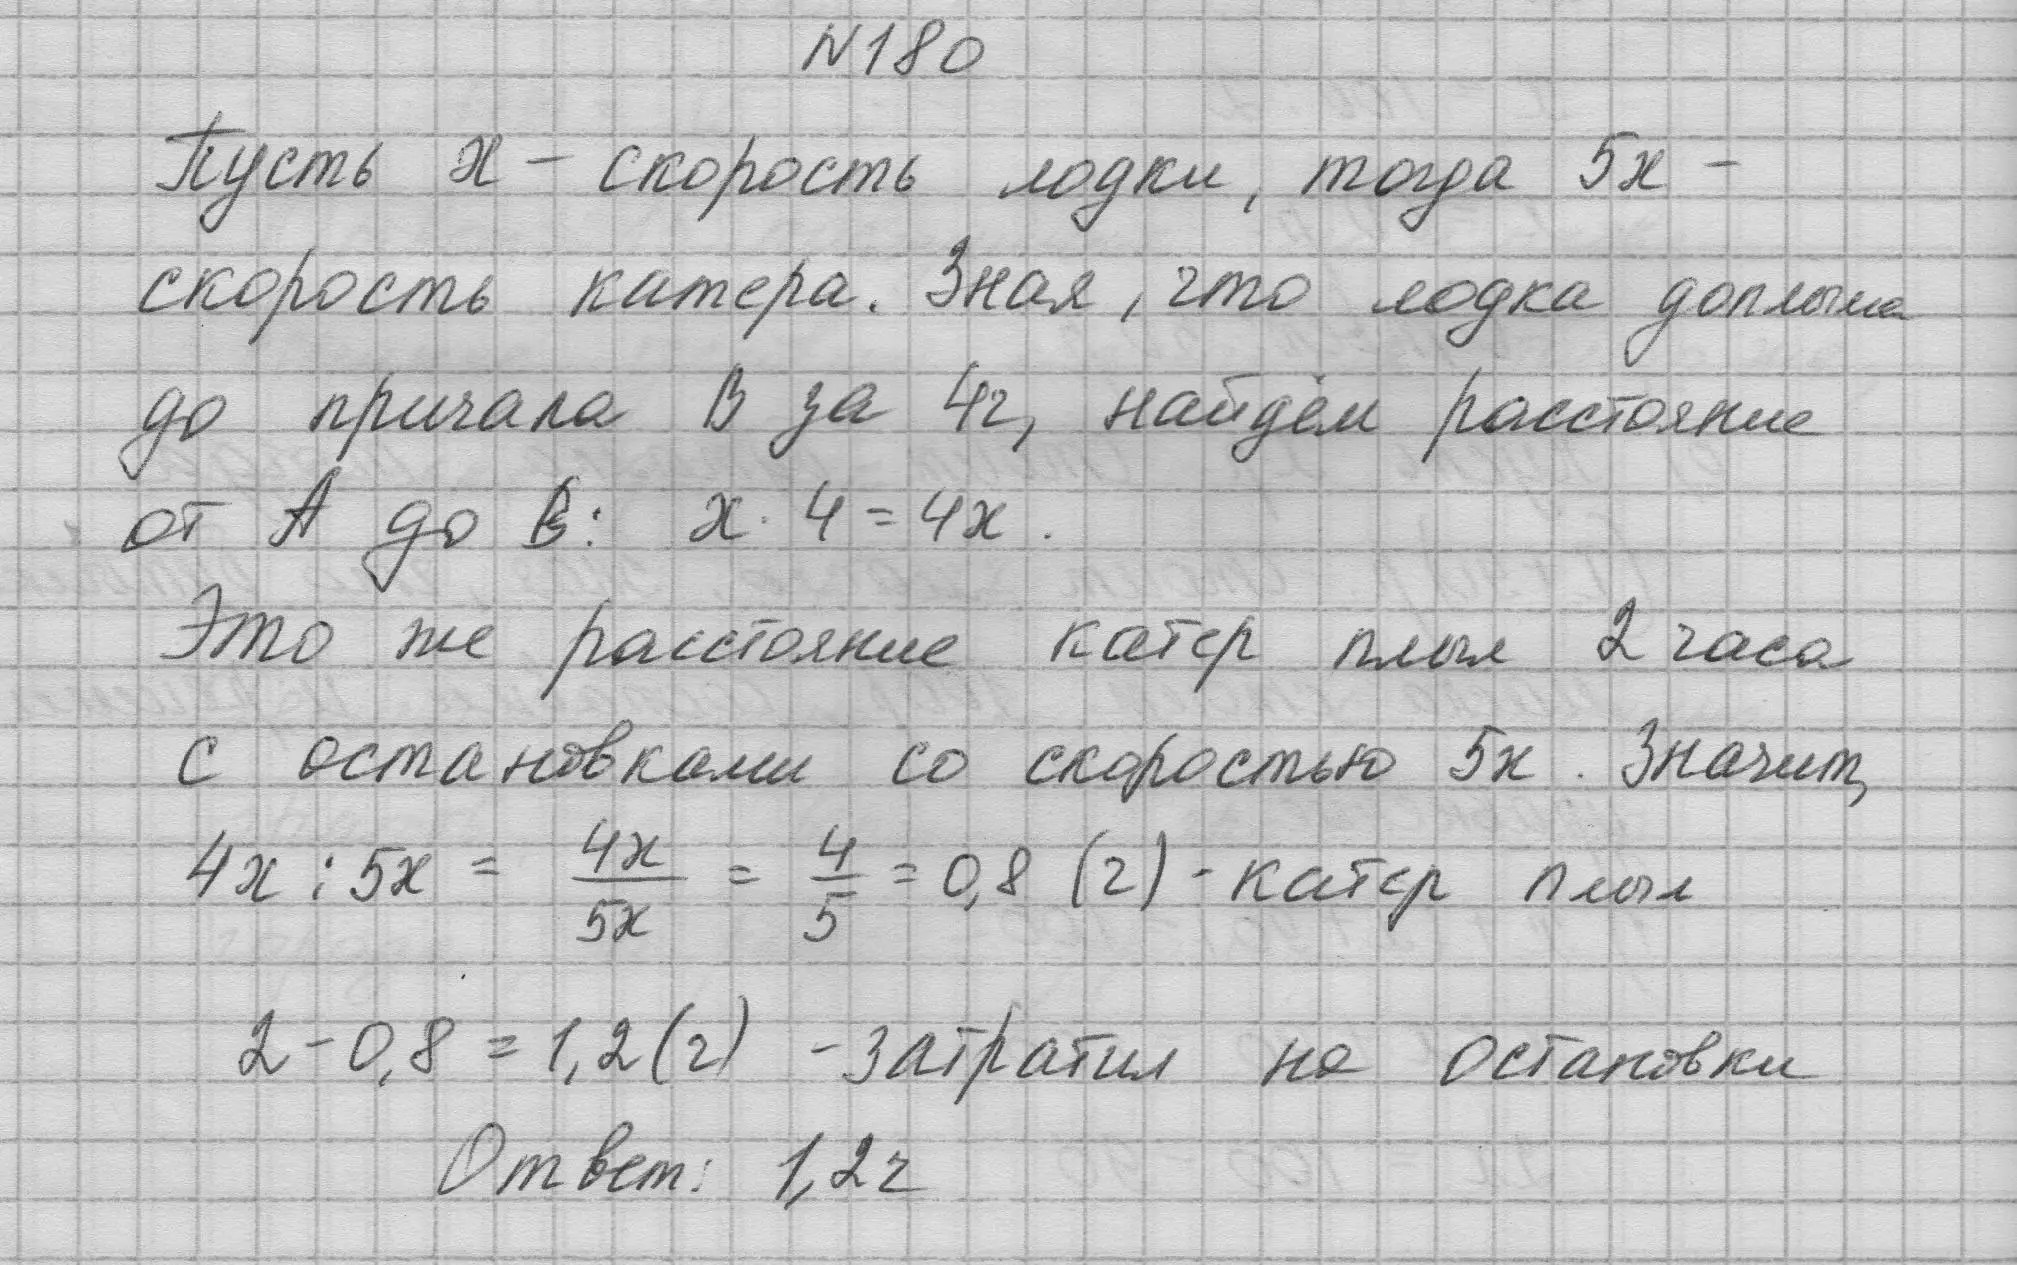 N180
Пусть х – скорость лодки, тогда 5х –
скорость катера. Зная, что лодка доплыла
до причала В за 4ч, найдём расстояние
от А до В: х · 4 = 4х.
Это же расстояние катер плыл 2 часа
с остановками со скоростью 5х. Значит,
4х : 5х = 4х/5х = 4/5 = 0,8 (ч) - катер плыл
2 - 0,8 = 1,2 (ч) - затратил на остановки
Ответ: 1,2ч